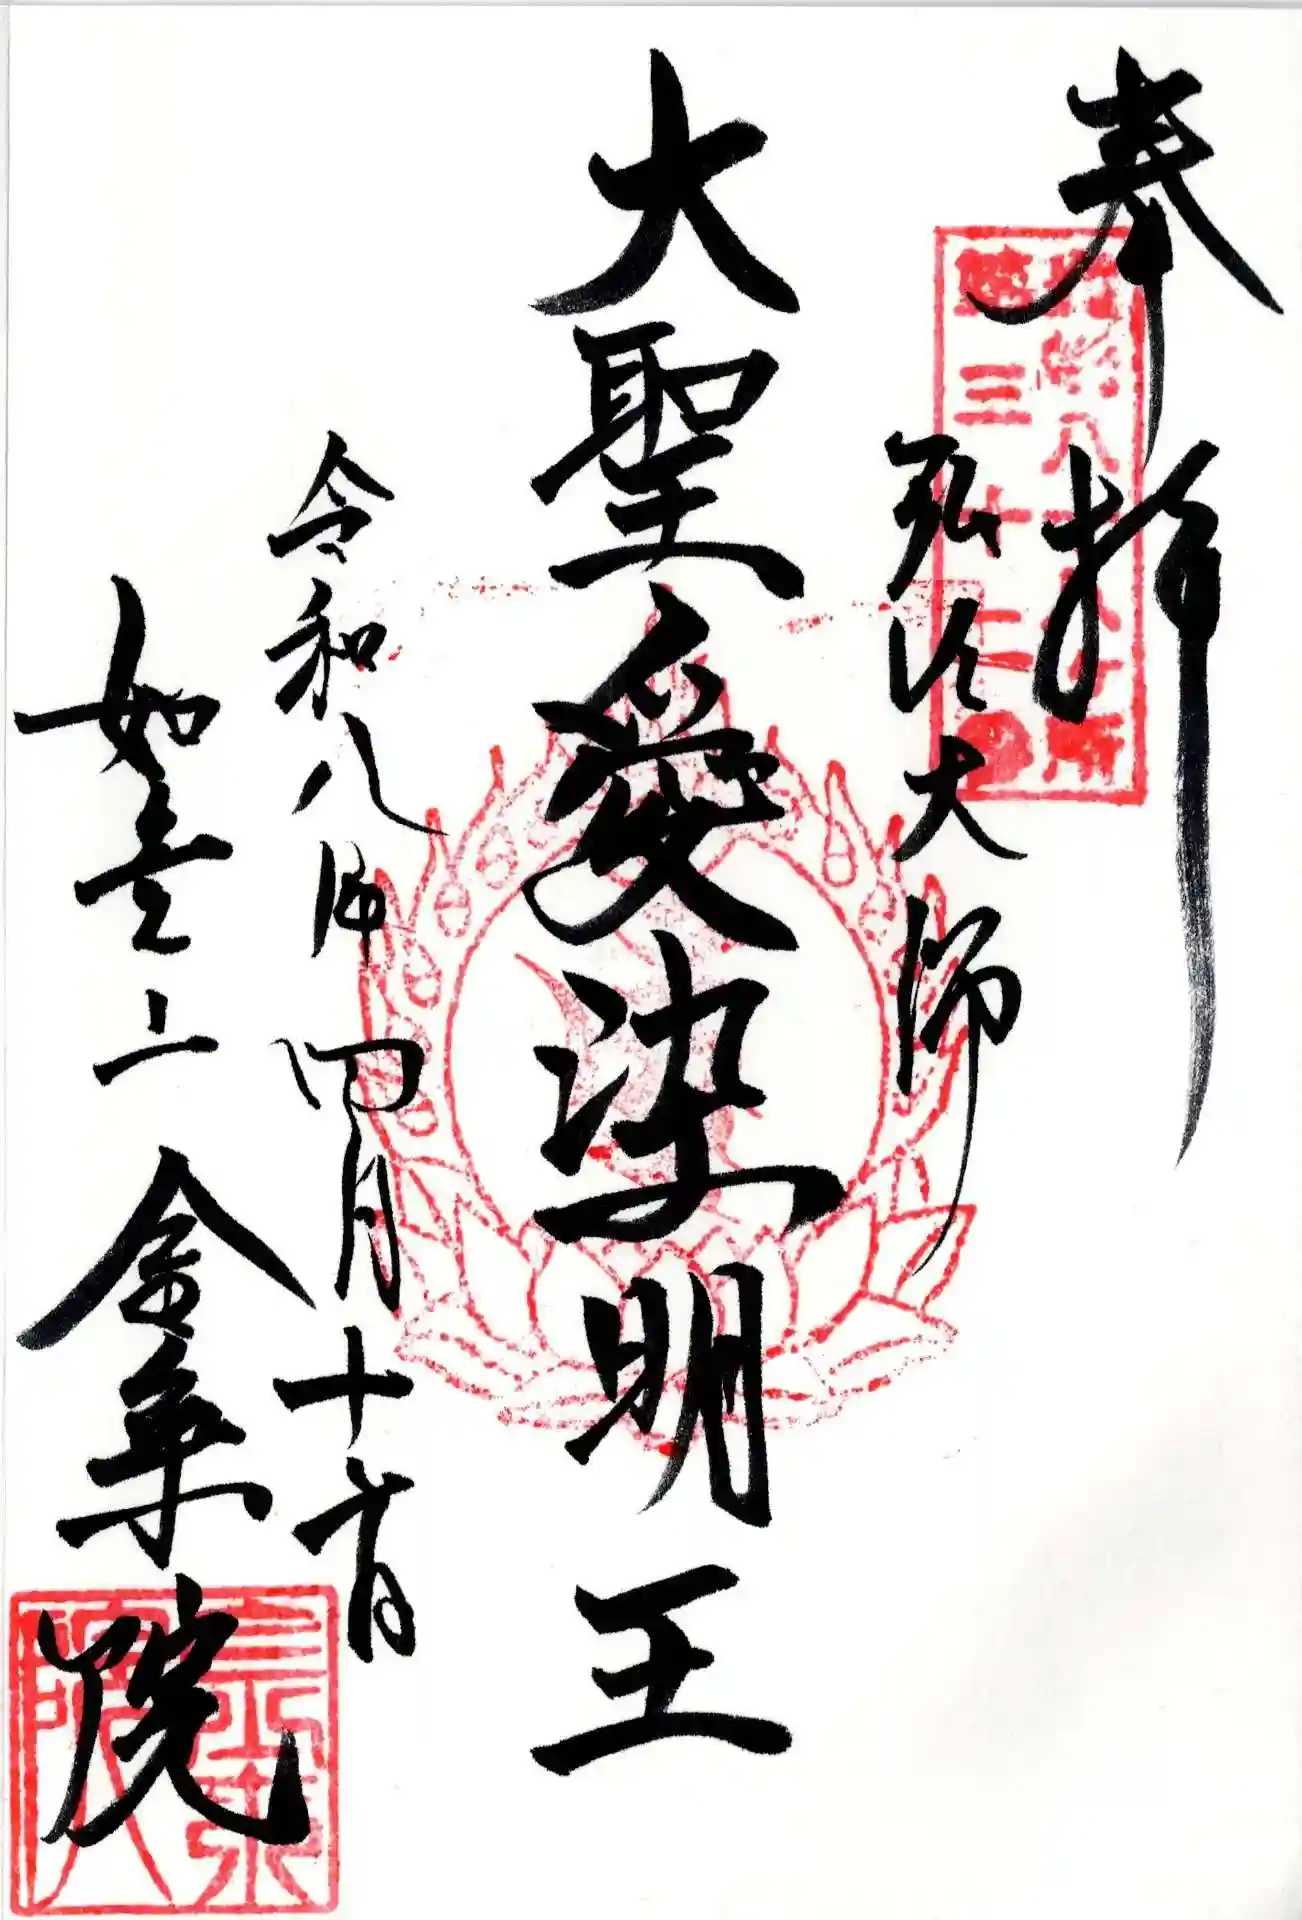 奉拝
弘法大師
大聖愛染明王
令和八年四月十六日
如意山 金乗院